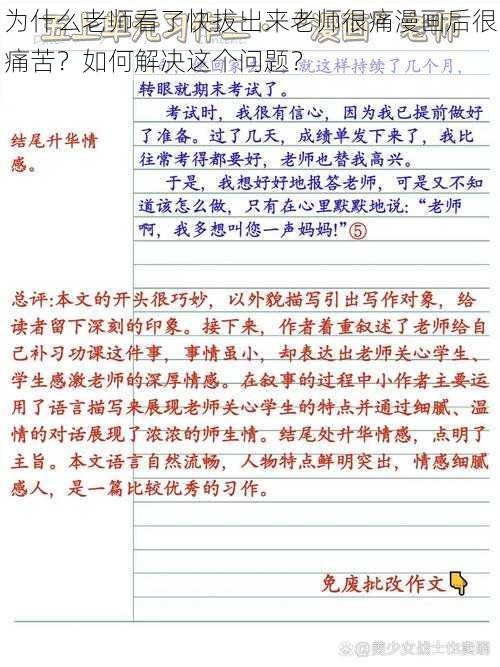 为什么老师看了快拔出来老师很痛漫画后很
痛苦？如何解决这个问题？
就这样持续了几个月，
转眼就期末考试了。
考试时，我很有信心，因为我已提前做好
了准备。过了几天，成绩单发下来了，我比
往常考得都要好，老师也替我高兴。
于是，我想好好地报答老师，可是又不知
道该怎么做，只有在心里默默地说：“老师
啊，我多想叫您一声妈妈！”⑤
结尾升华情
感。
总评：本文的开头很巧妙，以外貌描写引出写作对象，给
读者留下深刻的印象。接下来，作者着重叙述了老师给自
己补习功课这件事，事情虽小，却表达出老师关心学生、
学生感激老师的深厚情感。在叙事的过程中小作者主要运
用了语言描写来展现老师关心学生的特点并通过细腻、温
情的对话展现了浓浓的师生情。结尾处升华情感，点明了
主旨。本文语言自然流畅，人物特点鲜明突出，情感细腻
感人，是一篇比较优秀的习作。
免废批改作文
@美少女战士也卖萌